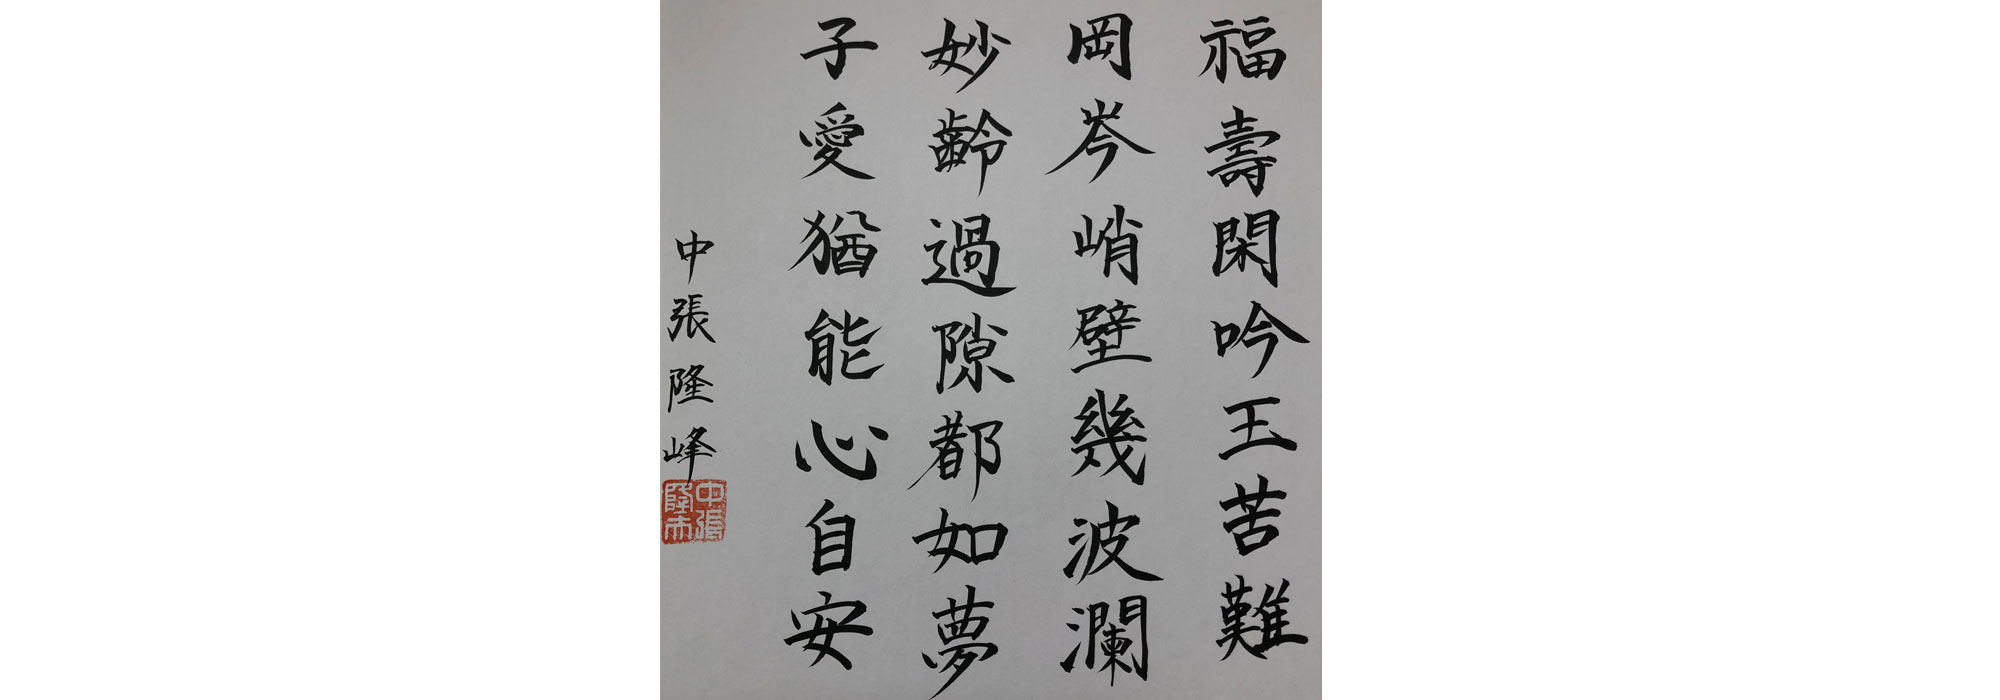 福壽閑吟王苦難
岡岑峭壁幾波瀾
妙齡過隙都如夢
子愛猶能心自安
中張隆峰
中張
隆